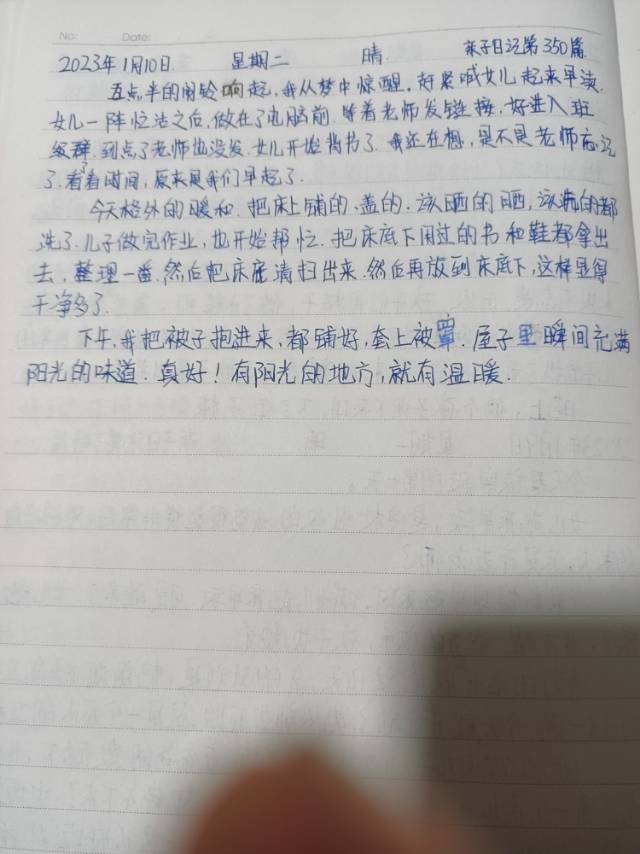 No: Date:
2023年1月10日 星期二 晴 亲子日记第350篇
五点半的闹铃响起,我从梦中惊醒.好紧喊女儿起来早读.
女儿一阵忙活之后,做在了电脑前.等着老师发链接,好进入班
级群.到点了老师也没发.女儿开始背书了.我还在想,是不是老师忘记
了.看看时间,原来是我们早起了.
今天格外的暖和.把床上铺的.盖的.该晒的晒,该洗的都
洗了.儿子做完作业,也开始帮忙.把床底下用过的书和鞋都拿出
去,整理一番.然后把床底清扫出来.然后再放到床底下,这样显得
干净多了.
下午,我把被子抱进来,都铺好,套上被罩.屋子里瞬间充满
阳光的味道.真好!有阳光的地方,就有温暖.